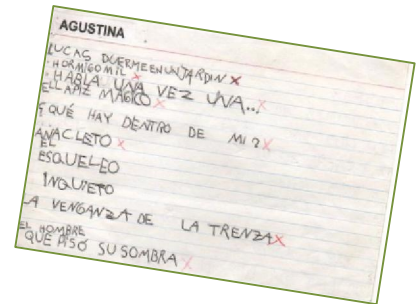 AGUSTINA
LUCAS DUERME EN UN JARDIN X
HORMIGOMIL X
HABIA UNA VEZ UNA... X
EL LAPIZ MAGICO X
¿QUÉ HAY DENTRO DE MI? X
ANACLETO X
EL
ESQUELEO
INQUIETO
LA VENGANZA DE LA TRENZA X
EL HOMBRE
QUE PISÓ SU SOMBRA X